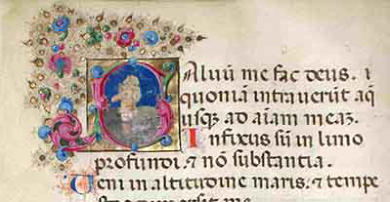 Saluū me fac deus. i
quoniā intrauerūt aq̄
usqȝ ad aīam meaȝ.
Infixus sū in limo
profundi ⁊ nō substantia.
Ueni in altitudine maris. ⁊ tempe